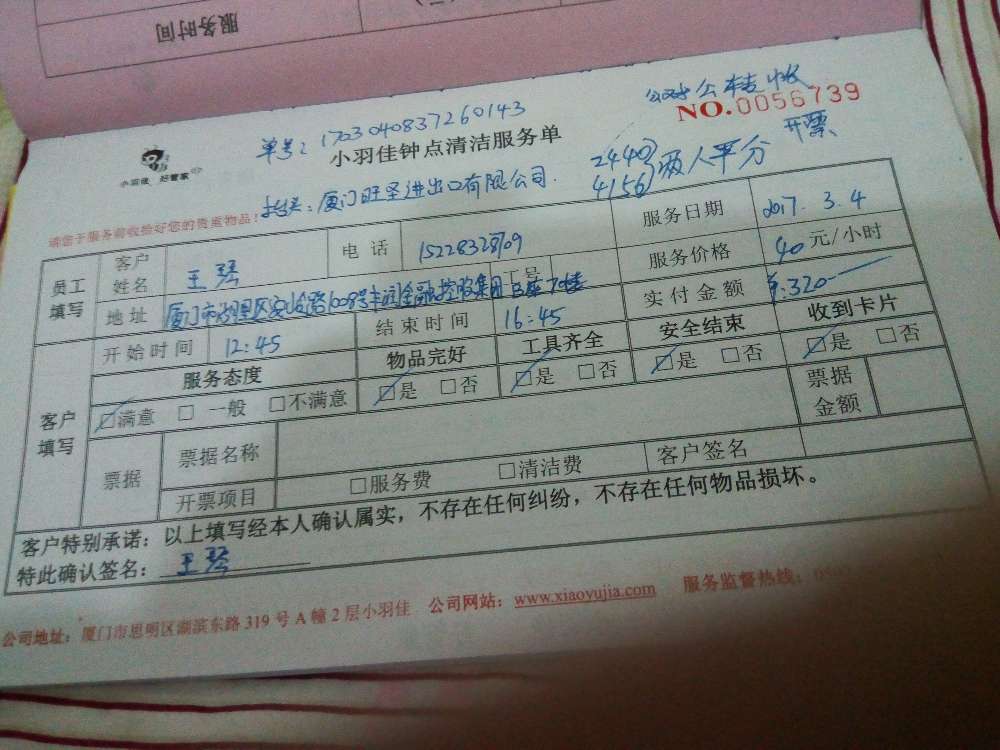 服务时间
公对公转收
单号：1703040837260143
NO.0056739
小羽佳 好管家
小羽佳钟点清洁服务单
开票
2440
4156 两人平分
抬头：厦门旺圣进出口有限公司.
请您于服务前收捡好您的贵重物品！
员工填写 客户姓名 王琴 电话 15228328709 服务日期 2017.3.4
地址 厦门市湖里区安岭路1008号 金融控股集团 工号 服务价格 40元/小时
客户填写 开始时间 12:45 结束时间 16:45 实付金额 ¥:320
服务态度 物品完好 工具齐全 安全结束 收到卡片
☑满意 □一般 □不满意 ☑是 □否 ☑是 □否 ☑是 □否 ☑是 □否
票据 票据名称 票据金额
开票项目 □服务费 □清洁费 客户签名
客户特别承诺：以上填写经本人确认属实，不存在任何纠纷，不存在任何物品损坏。
特此确认签名：王琴
公司地址：厦门市思明区湖滨东路319号A幢2层小羽佳 公司网站：www.xiaoyujia.com 服务监督热线：